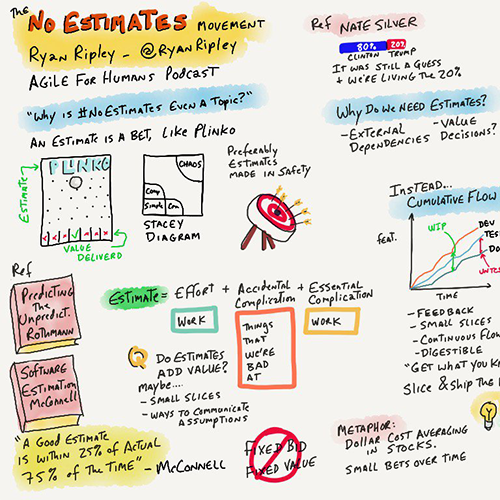 The No Estimates movement
Ryan Ripley - @RyanRipley
Agile For Humans Podcast
"Why is #NoEstimates Even A Topic?"
An Estimate is a Bet, Like Plinko
Estimate
PLINKO
Value
Deliverd
Chaos
Comp
Simple
Com
Stacey
Diagram
Preferably
Estimates
made in Safety
Ref
Predicting
the
Unpredict.
Rothmann
Software
Estimation
McConnell
"A Good Estimate
is within 25% of Actual
75% of the Time" - McConnell
Estimate = Effort + Accidental Complication + Essential Complication
Work
Things
That
We're
Bad
At
Work
Q Do Estimates
Add Value?
Maybe....
- Small slices
- Ways to communicate
assumptions
Fixed Bid
Fixed Value
Ref Nate Silver
80% 20%
Clinton Trump
It was still a guess
+ we're living the 20%
Why Do We Need Estimates?
- External
Dependencies
- Value
Decisions?
Instead...
Cumulative Flow
Feat.
WIP
Dev
Tes
Do
Time
- Feedback
- Small slices
- Continuous Flow
- Digestible
"Get what you
Slice & Ship the
Metaphor:
Dollar Cost Averaging
in Stocks.
Small bets over time